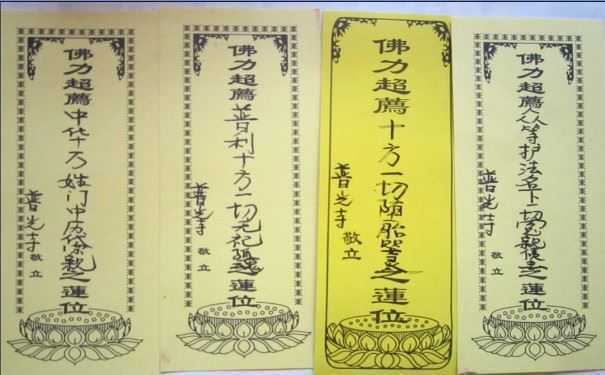 佛力超薦中华十万姓门中历代宗亲之蓮位
普光寺敬立
佛力超薦普利十方一切无祀孤魂之蓮位
普光寺敬立
佛力超薦十方一切堕胎婴灵之蓮位
普光寺敬立
佛力超薦众等护法名下一切冤親债主之蓮位
普光寺敬立